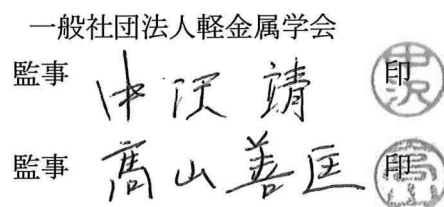 一般社団法人軽金属学会
監事 中沢 靖 印
監事 髙山善匡 印